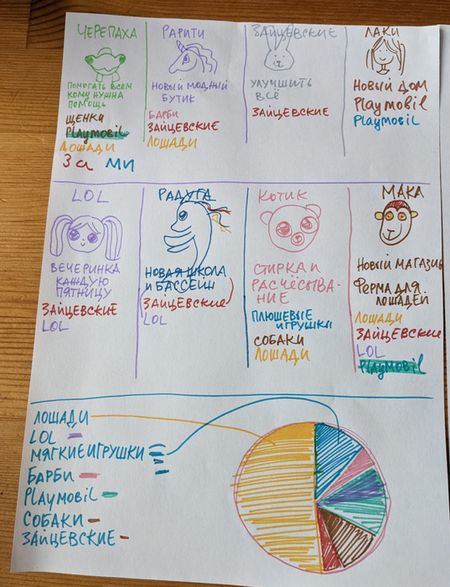 ЧЕРЕПАХА
ПОМОГАТЬ ВСЕМ
КОМУ НУЖНА
ПОМОЩЬ
ЩЕНКИ
Playmobil
ЛОШАДИ
За МИ
РАРИТИ
НОВЫЙ МОДНЫЙ
БУТИК
БАРБИ
ЗАЙЦЕВСКИЕ
ЛОШАДИ
ЗАЙЦЕВСКИЕ
УЛУЧШИТЬ
ВСЁ
ЗАЙЦЕВСКИЕ
ЛАКИ
НОВЫЙ ДОМ
Playmobil
Playmobil
LOL
ВЕЧЕРИНКА
КАЖДУЮ
ПЯТНИЦУ
ЗАЙЦЕВСКИЕ
LOL
РАДУГА
НОВАЯ ШКОЛА
И БАССЕЙН
ЗАЙЦЕВСКИЕ
LOL
КОТИК
СТИРКА И
РАСЧЁСЫВА-
НИЕ
ПЛЮШЕВЫЕ
ИГРУШКИ
СОБАКИ
ЛОШАДИ
МАКА
НОВЫЙ МАГАЗИН
ФЕРМА ДЛЯ
ЛОШАДЕЙ
ЛОШАДИ
ЗАЙЦЕВСКИЕ
LOL
Playmobil
ЛОШАДИ
LOL
МЯГКИЕ ИГРУШКИ
БАРБИ
Playmobil
СОБАКИ
ЗАЙЦЕВСКИЕ